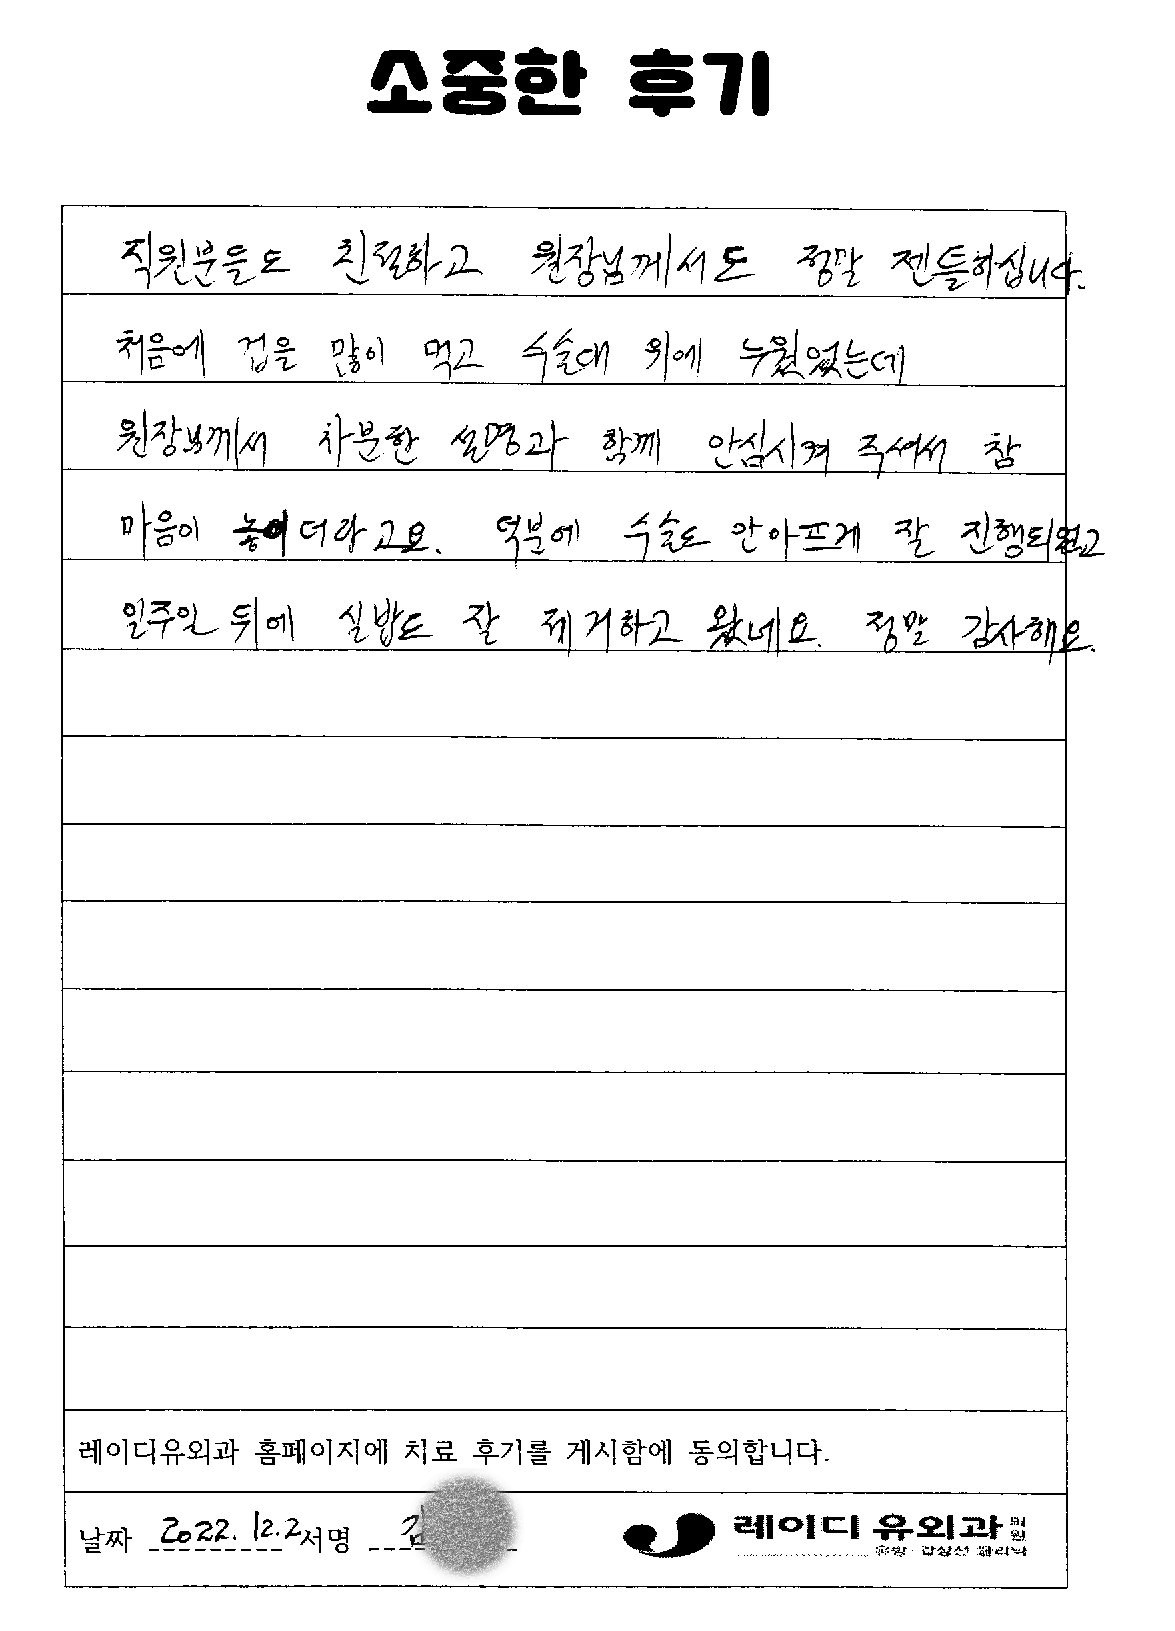 소중한 후기
직원분들도 친절하고 원장님께서도 정말 젠틀하십니다.
처음에 겁을 많이 먹고 수술대 위에 누웠었는데
원장님께서 차분한 설명과 함께 안심시켜 주셔서 참
마음이 놓이더라고요. 덕분에 수술도 안아프게 잘 진행되었고
일주일 뒤에 실밥도 잘 제거하고 왔네요. 정말 감사해요.
레이디유외과 홈페이지에 치료 후기를 게시함에 동의합니다.
날짜 2022. 12. 2 서명 김
레이디유외과의원
유방·갑상선 클리닉